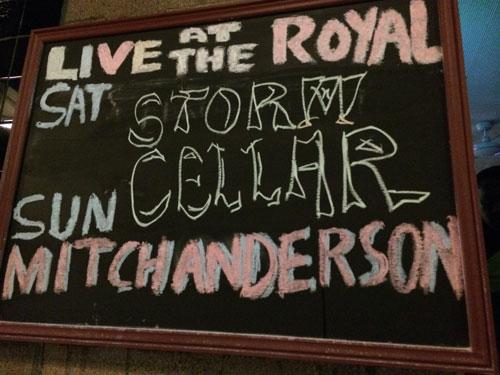 LIVE AT THE ROYAL
SAT STORM
CELLAR
SUN
MITCH ANDERSON